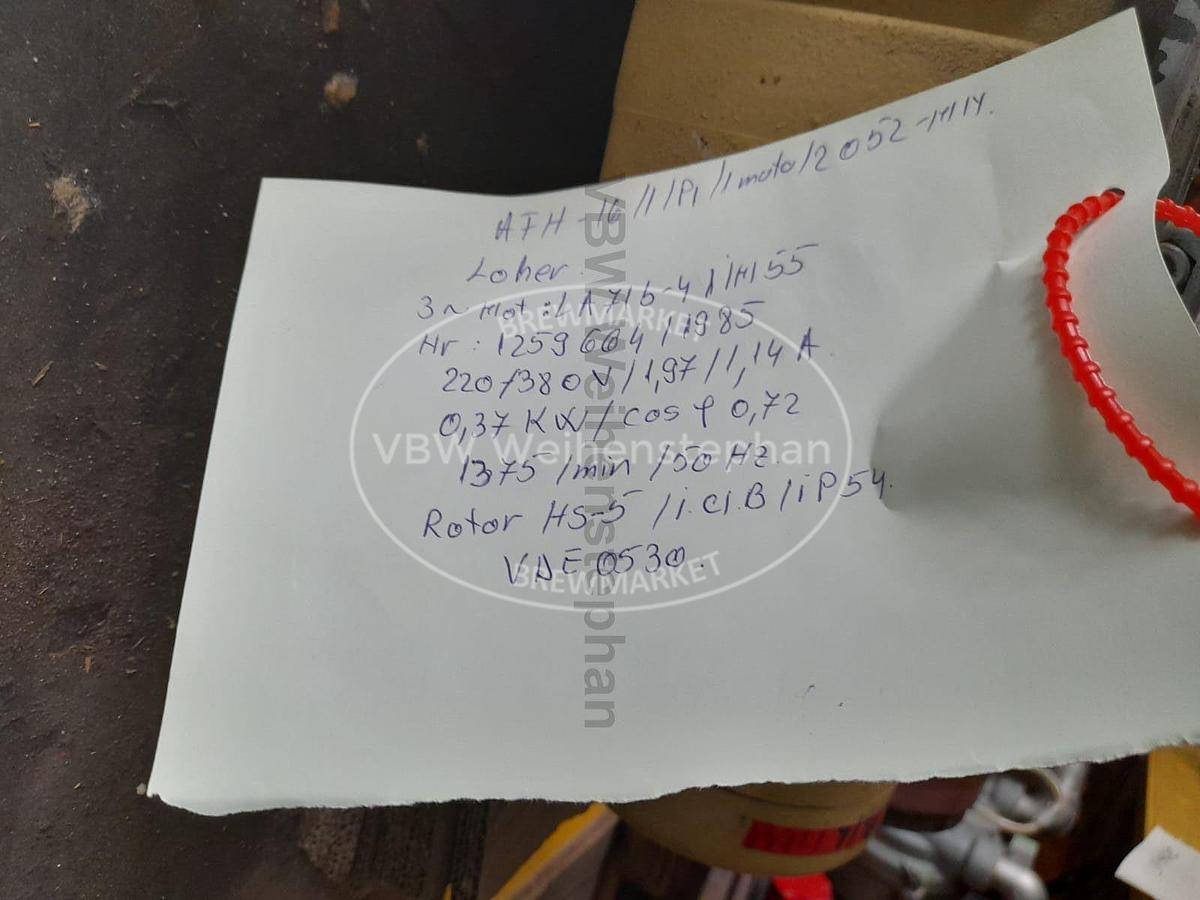 AFH-16/1/P1/1 moto/2052-MM.
Loher.
3~ Mot: LA71b-4 / IM 55
Nr: 1259664/1985
220/380V/1,97/1,14 A
0,37 KW/cos φ 0,72
1375/min/50 Hz.
Rotor HS-5/i.Cl.B/iP 54.
VDE 0530.
BREWMARKET
VBW Weihenstephan
BREWMARKET
VBW Weihenstephan